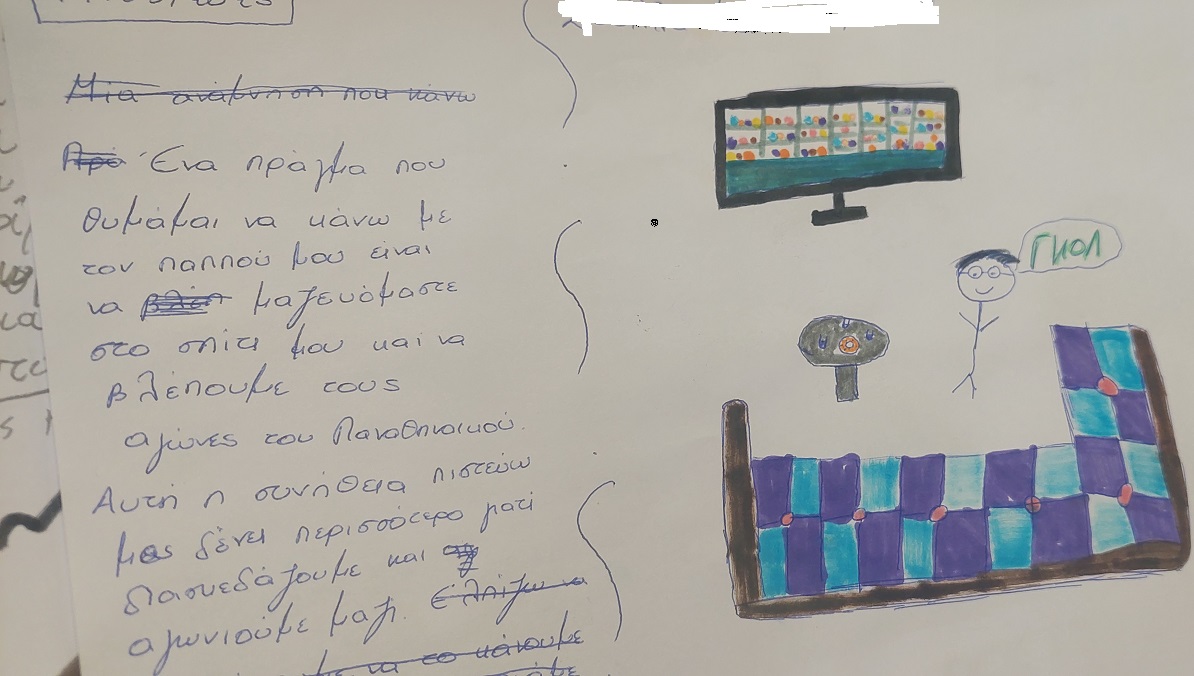 Μια ανάμνηση που κάνω
Ένα πράγμα που
θυμάμαι να κάνω με
τον παππού μου είναι
να μαζευόμαστε
στο σπίτι μου και να
βλέπουμε τους
αγώνες του Παναθηναικού.
Αυτή η συνήθεια πιστεύω
μας δένει περισσότερο γιατί
διασκεδάζουμε και
αγωνιούμε μαζί. Ελπίζω να
να το κάνουμε
ΓΚΟΛ